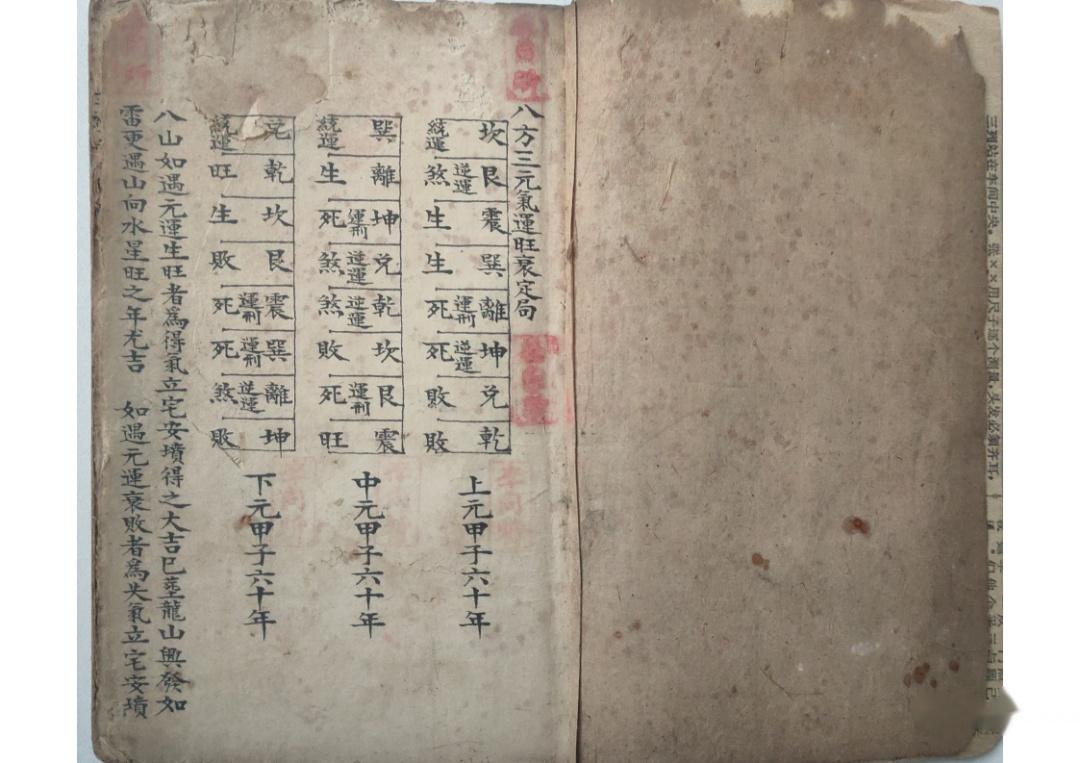 八方三元氣運旺衰定局
坎 艮 震 巽 離 坤 兌 乾
逆運 運刑 逆運
統運 煞 生 生 死 死 敗 敗
上元甲子六十年
巽 離 坤 兌 乾 坎 艮 震
運刑 逆運 逆運 運刑
統運 生 死 煞 煞 敗 死 旺
中元甲子六十年
兌 乾 坎 艮 震 巽 離 坤
運刑 運刑 逆運
統運 旺 生 敗 死 死 煞 敗
下元甲子六十年
八山如遇元運生旺者爲得氣立宅安墳得之大吉已塟龍山興發如
雷更遇山向水星旺之年尤吉 如遇元運衰敗者爲失氣立宅安墳